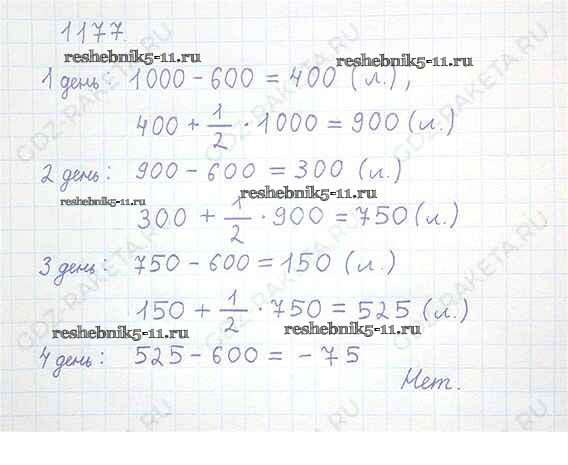 1177.
reshebnik5-11.ru
reshebnik5-11.ru
1 день: 1000 - 600 = 400 (л.),
400 + 1/2 · 1000 = 900 (л.)
2 день: 900 - 600 = 300 (л.)
reshebnik5-11.ru
reshebnik5-11.ru
300 + 1/2 · 900 = 750 (л.)
3 день: 750 - 600 = 150 (л.)
150 + 1/2 · 750 = 525 (л.)
reshebnik5-11.ru
reshebnik5-11.ru
4 день: 525 - 600 = - 75
Нет.
GDZ-RAKETA.RU
GDZ-RAKETA.RU
GDZ-RAKETA.RU
GDZ-RAKETA.RU